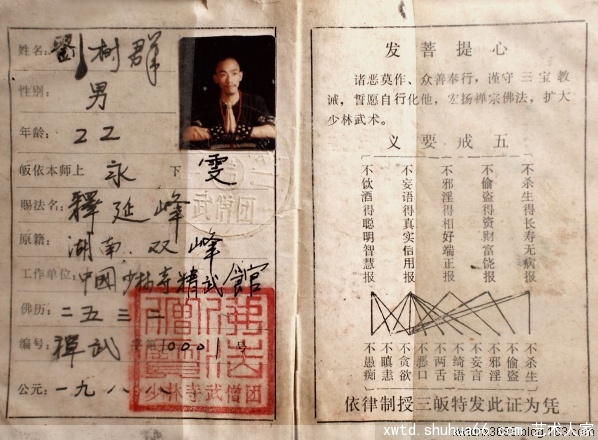 姓名：劉樹群
性别：男
年龄：22
皈依本师上永下雯
赐法名：釋延峰
原籍：湖南.双峰
工作单位：中國少林寺精武館
佛历：二五三二
编号：禅武 10001号
公元：一九八八
少林寺武僧团
武僧团
发菩提心
诸恶莫作、众善奉行，谨守三宝教
诫，誓愿自行化他，宏扬禅宗佛法，扩大
少林武术。
五戒要义
不杀生得长寿无病报
不偷盗得资财富饶报
不邪淫得相好端正报
不妄语得真实信用报
不饮酒得聪明智慧报
不杀生
不偷盗
不邪淫
不妄言
不绮语
不两舌
不恶口
不贪欲
不瞋恚
不愚痴
依律制授三皈特发此证为凭
xwtd.shuhua66.com 艺术人家